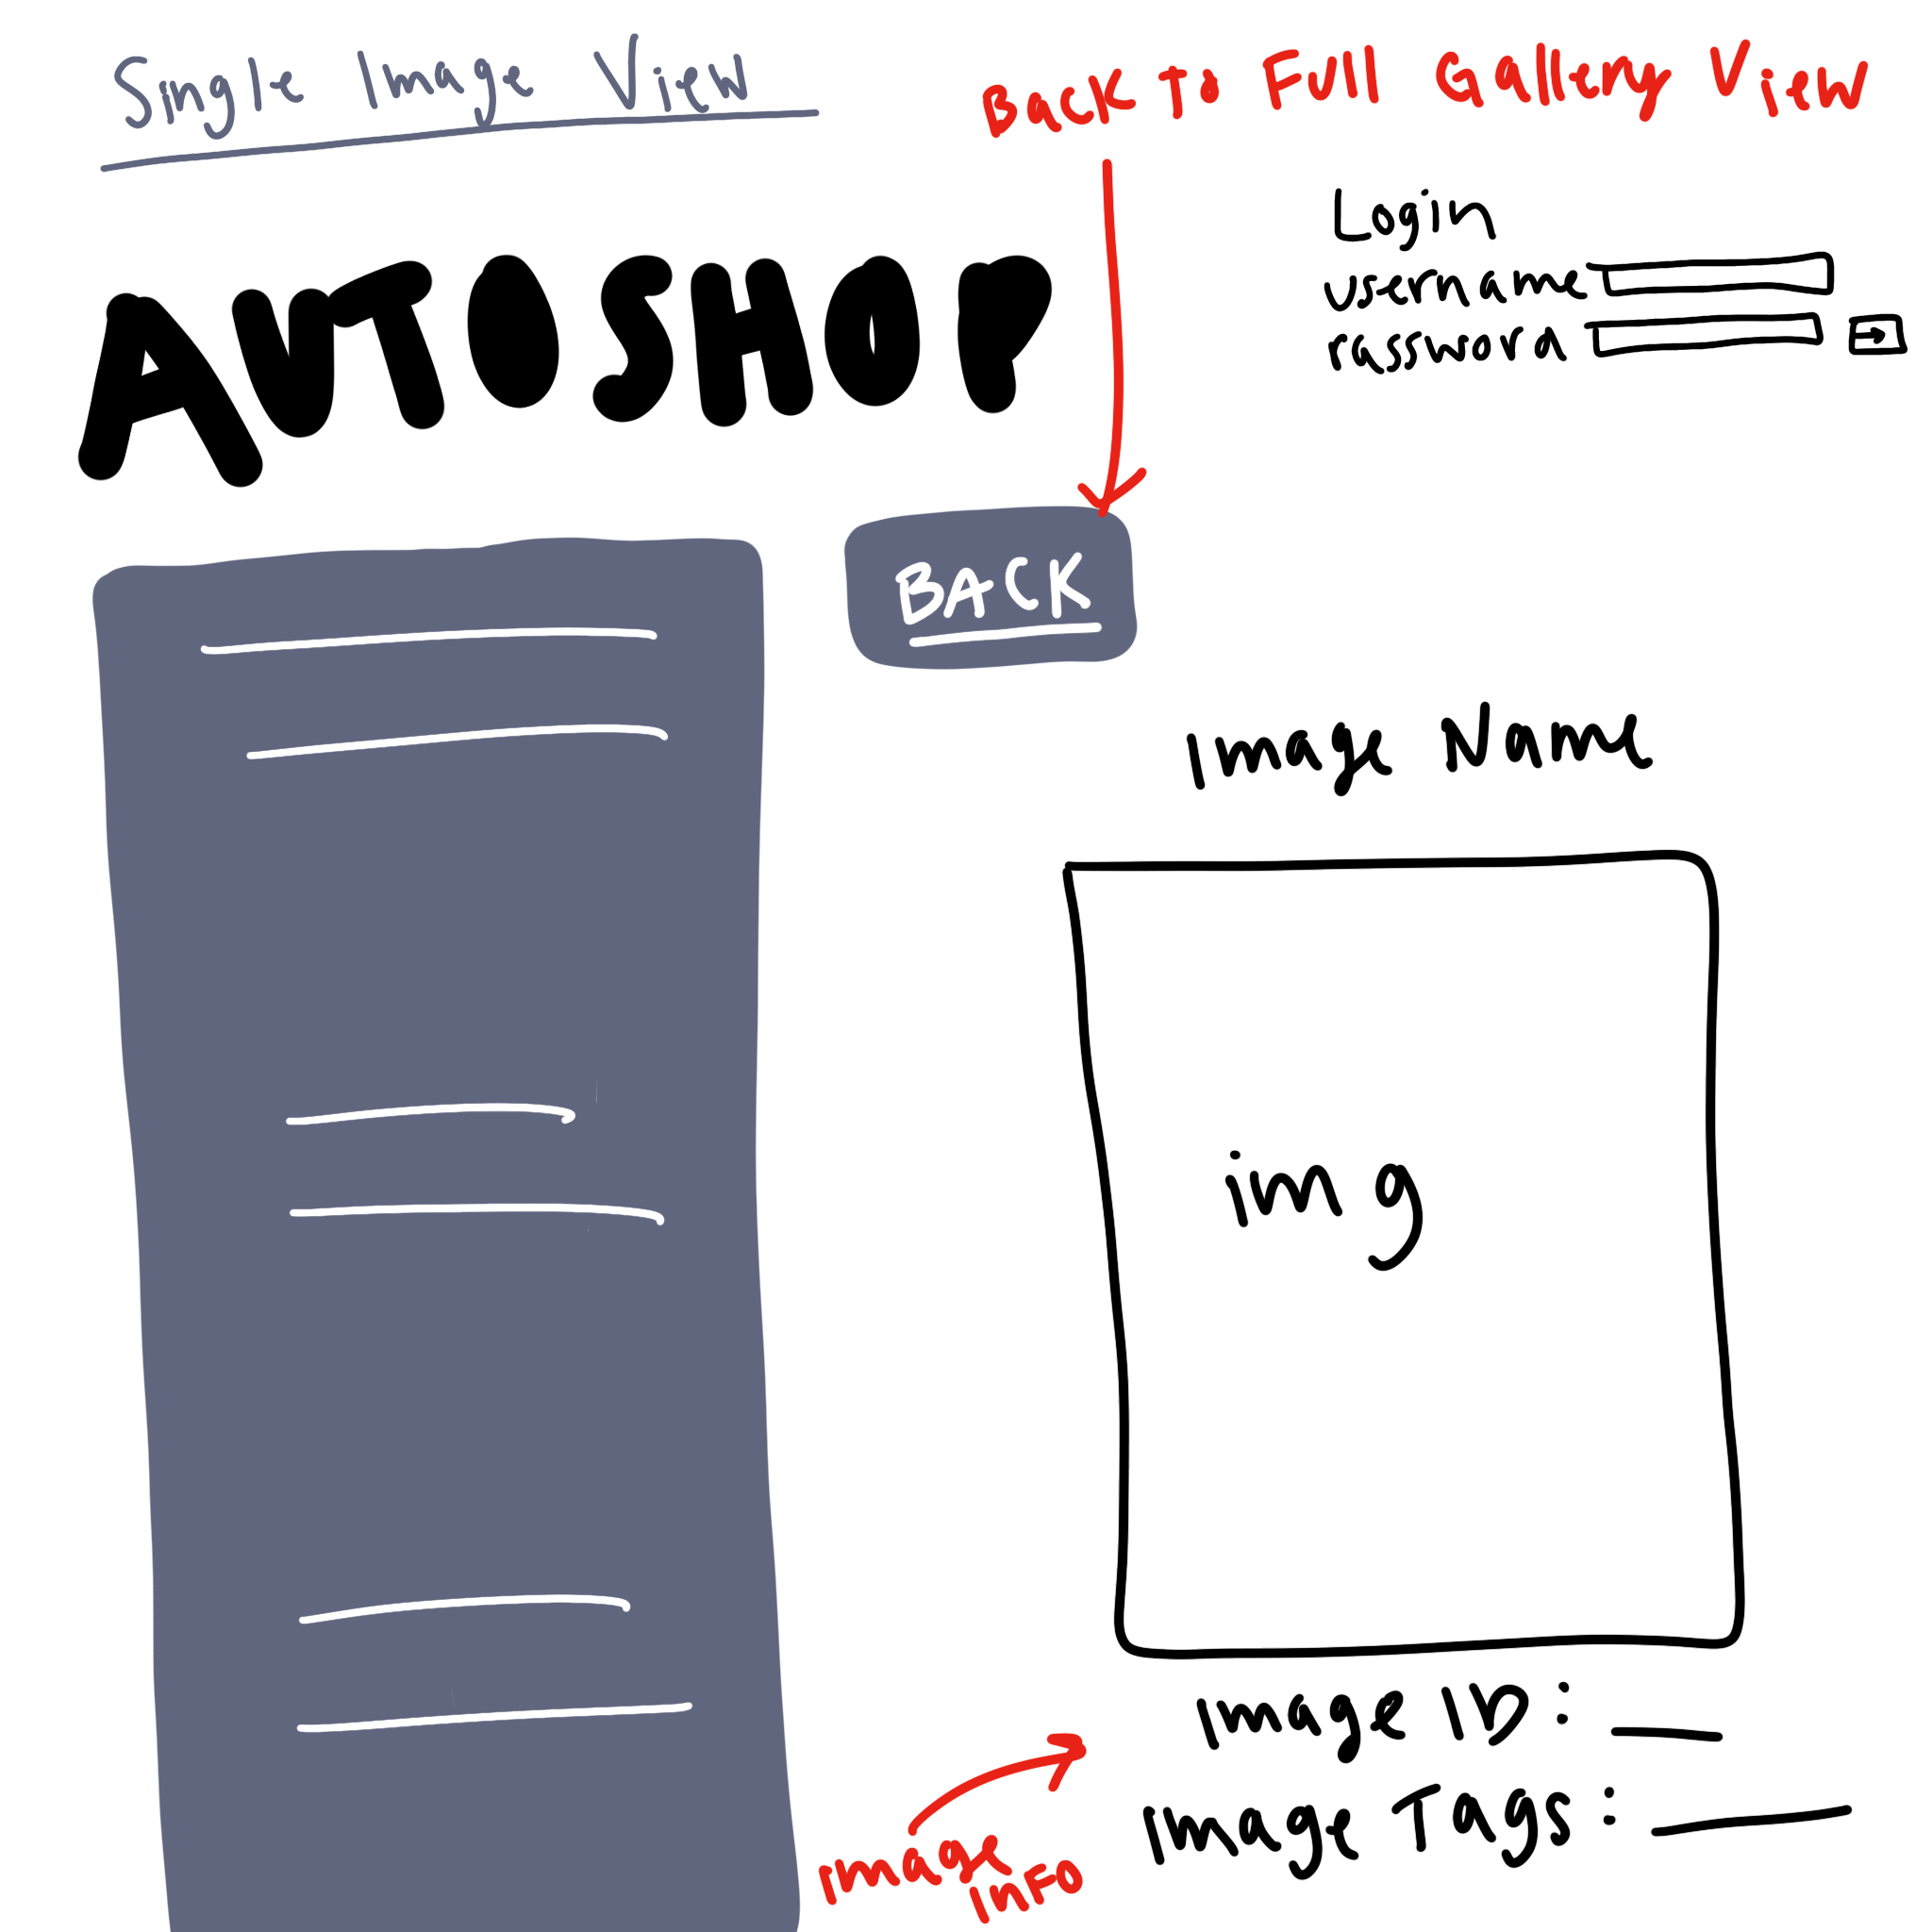 Single Image View
Back To Full Gallery View
Login
username
password
AUTOSHOP
BACK
Image Name
img
Image ID:
Image Tags:
image
info